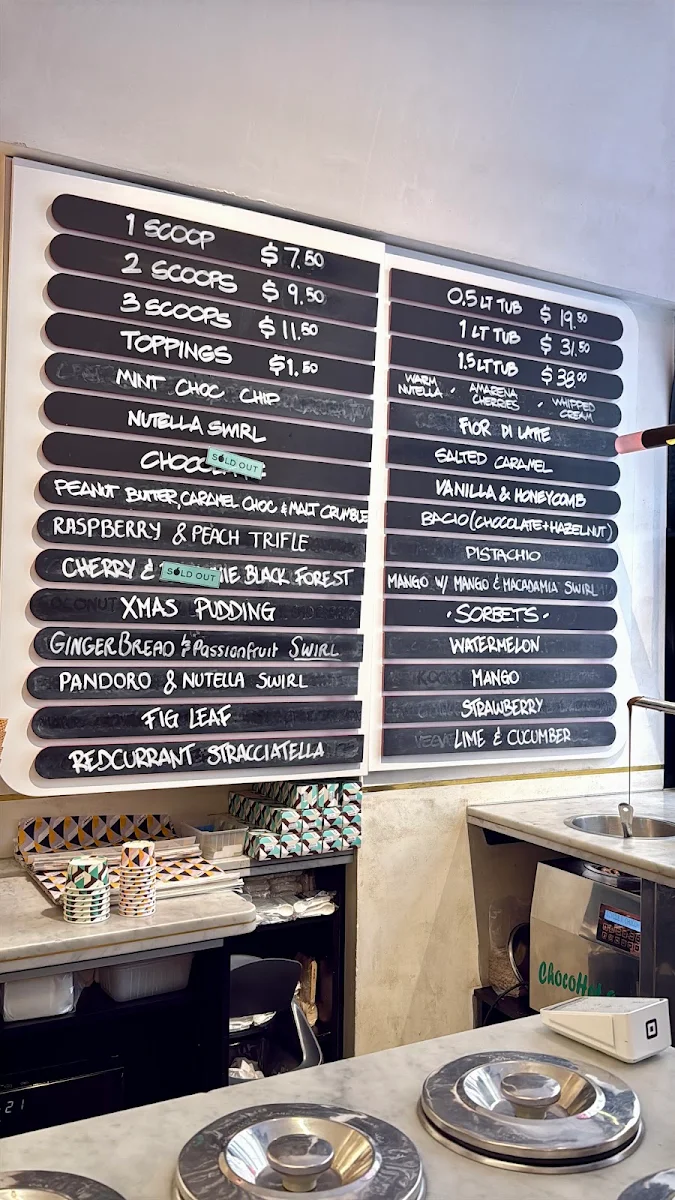 1 SCOOP $7.50
2 SCOOPS $9.50
3 SCOOPS $11.50
TOPPINGS $1.50
MINT CHOC CHIP
NUTELLA SWIRL
SOLD OUT
PEANUT BUTTER, CARAMEL CHOC & MALT CRUMBLE
RASPBERRY & PEACH TRIFLE
CHERRY & SOLD OUT BLACK FOREST
XMAS PUDDING
GINGERBREAD & Passionfruit SWIRL
PANDORO & NUTELLA SWIRL
FIG LEAF
REDCURRANT STRACCIATELLA
0.5 LT TUB $19.50
1 LT TUB $31.50
1.5 LT TUB $38.00
WARM NUTELLA • AMARENA CHERRIES • WHIPPED CREAM
FIOR DI LATTE
SALTED CARAMEL
VANILLA & HONEYCOMB
BACIO (CHOCOLATE+HAZELNUT)
PISTACHIO
MANGO W/ MANGO & MACADAMIA SWIRL
• SORBETS •
WATERMELON
MANGO
STRAWBERRY
LIME & CUCUMBER
21